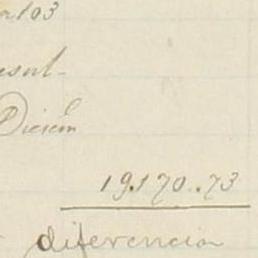 103
esul-
Diciem
19.170..73
diferencia